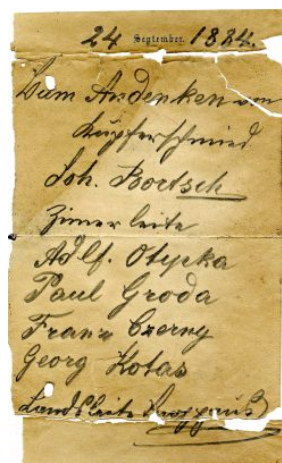 24 September 1884.
Zum Andenken von
Kupferschmied
Joh. Bortsch
Zimerleite
Adlf. Otypka
Paul Groda
Franz Czerny
Georg Kotas
Landsleite